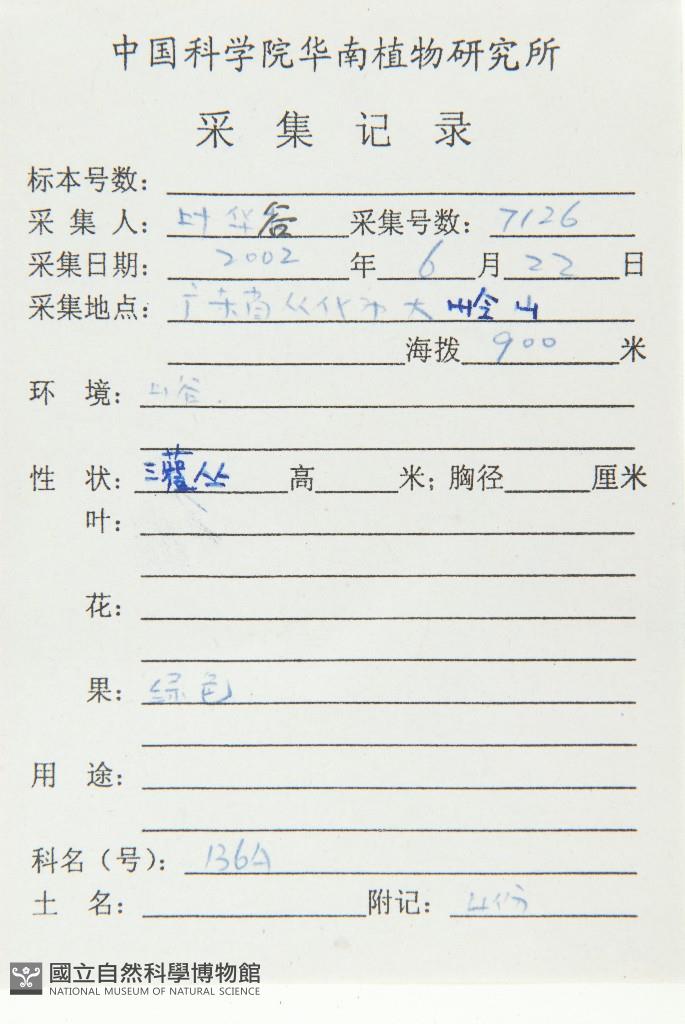 中国科学院华南植物研究所
采集记录
标本号数：
采集人：叶华谷 采集号数：7126
采集日期：2002年6月22日
采集地点：广东省从化市大岭山
海拨900米
环境：山谷.
性状：灌丛 高 米；胸径 厘米
叶：
花：
果：绿色
用途：
科名（号）：136A
土名： 附记：4份
國立自然科學博物館
NATIONAL MUSEUM OF NATURAL SCIENCE